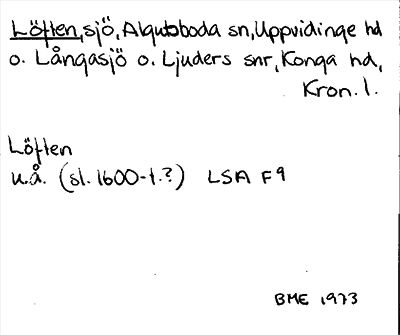 Löften, sjö, Algutsboda sn, Uppvidinge hd
o. Långasjö o. Ljuders snr, Konga hd,
Kron. l.
Löften
u.å. (sl. 1600-t.?) LSA F9
BME 1973